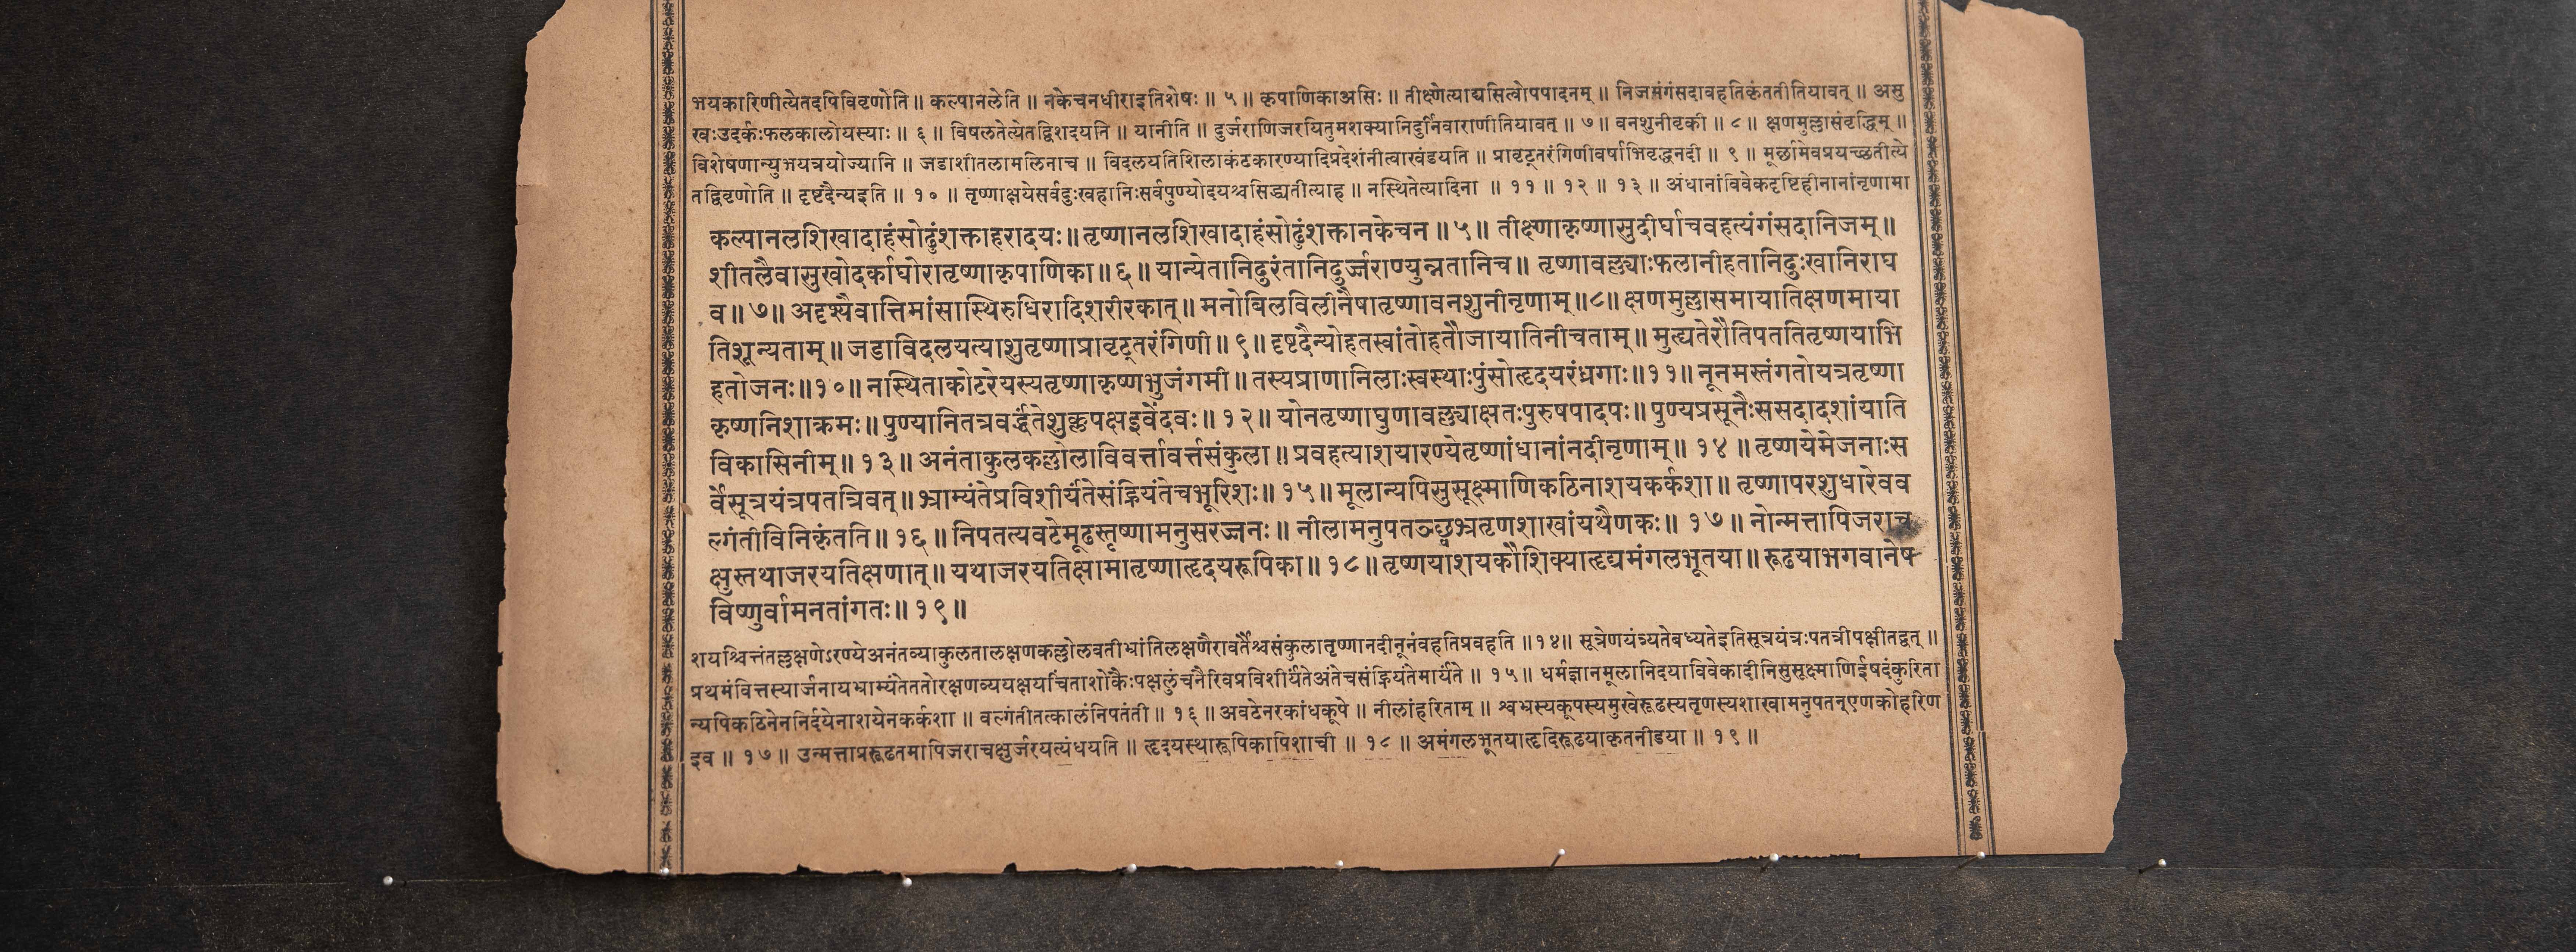 भयकारिणीत्येतदपिविवृणोति ॥ कल्पानलेति ॥ नकेचनधीराइतिशेषः ॥ ५ ॥ कृपाणिकाअसिः ॥ तीक्ष्णेत्याद्यसित्वोपपादनम् ॥ निजमंगंसदावहतिकृंततीतियावत् ॥ असु
खःउदर्कःफलकालोयस्याः ॥ ६ ॥ विषलतेत्येतद्विशदयति ॥ यानीति ॥ दुर्जराणिजरयितुमशक्यानिदुर्निवाराणीतियावत् ॥ ७ ॥ वनशुनीवृकी ॥ ८ ॥ क्षणमुल्लासंवृद्धिम् ॥
विशेषणान्युभयत्रयोज्यानि ॥ जडाशीतलामलिनाच ॥ विदलयतिशिलाकंटकारण्यादिप्रदेशंनीत्वाखंडयति ॥ प्रावृट्तरंगिणीवर्षाभिवृद्धनदी ॥ ९ ॥ मूर्छामेवप्रयच्छतीत्ये
तद्विवृणोति ॥ दृष्टदैन्यइति ॥ १० ॥ तृष्णाक्षयेसर्वदुःखहानिःसर्वपुण्योदयश्चसिद्ध्यतीत्याह ॥ नस्थितेत्यादिना ॥ ११ ॥ १२ ॥ १३ ॥ अंधानांविवेकदृष्टिहीनानांनृणामा
कल्पानलशिखादाहंसोढुंशक्ताहरादयः ॥ तृष्णानलशिखादाहंसोढुंशक्तानकेचन ॥ ५ ॥ तीक्ष्णाकृष्णासुदीर्घाचवहत्यंगंसदानिजम् ॥
शीतलैवासुखोदर्काघोरातृष्णाकृपाणिका ॥ ६ ॥ यान्येतानिदुरंतानिदुर्ज्जराण्युन्नतानिच ॥ तृष्णावल्ल्याःफलानीहतानिदुःखानिराघ
व ॥ ७ ॥ अदृश्यैवात्तिमांसास्थिरुधिरादिशरीरकात् ॥ मनोबिलविलीनैषातृष्णावनशुनीनृणाम् ॥ ८ ॥ क्षणमुल्लासमायातिक्षणमाया
तिशून्यताम् ॥ जडाविदलयत्याशुतृष्णाप्रावृट्तरंगिणी ॥ ९ ॥ दृष्टदैन्योहतस्वांतोहतौजायातिनीचताम् ॥ मुह्यतेरौतिपततितृष्णयाभि
हतोजनः ॥ १० ॥ नस्थिताकोटरेयस्यतृष्णाकृष्णभुजंगमी ॥ तस्यप्राणानिलाःस्वस्थाःपुंसोहृदयरंध्रगाः ॥ ११ ॥ नूनमस्तंगतोयत्रतृष्णा
कृष्णनिशाक्रमः ॥ पुण्यानितत्रवर्द्धंतेशुक्लपक्षइवेंदवः ॥ १२ ॥ योनतृष्णाघुणावल्ल्याक्षतःपुरुषपादपः ॥ पुण्यप्रसूनैःससदादशांयाति
विकासिनीम् ॥ १३ ॥ अनंताकुलकल्लोलाविवर्त्तावर्त्तसंकुला ॥ प्रवहत्याशयारण्येतृष्णांधानांनदीनृणाम् ॥ १४ ॥ तृष्णयेमेजनाःस
र्वेसूत्रयंत्रपतत्रिवत् ॥ भ्राम्यंतेप्रविशीर्यंतेसंह्रियंतेचभूरिशः ॥ १५ ॥ मूलान्यपिसुसूक्ष्माणिकठिनाशयकर्कशा ॥ तृष्णापरशुधारेवव
ल्गंतीविनिकृंतति ॥ १६ ॥ निपतत्यवटेमूढस्तृष्णामनुसरञ्जनः ॥ नीलामनुपतञ्छ्वभ्रतृणशाखांयथैणकः ॥ १७ ॥ नोन्मत्तापिजराच
क्षुस्तथाजरयतिक्षणात् ॥ यथाजरयतिक्षामातृष्णाहृदयरूपिका ॥ १८ ॥ तृष्णयाशयकौशिक्याहृद्यमंगलभूतया ॥ रूढयाभगवानेष
विष्णुर्वामनतांगतः ॥ १९ ॥
शयश्चित्तंतल्लक्षणेऽरण्येअनंतव्याकुलतालक्षणकल्लोलवतीभ्रांतिलक्षणैरावर्तैश्चसंकुलातृष्णानदीनूनंवहतिप्रवहति ॥ १४ ॥ सूत्रेणयंत्र्यतेबध्यतेइतिसूत्रयंत्रःपतत्रीपक्षीतद्वत् ॥
प्रथमंवित्तस्यार्जनायभ्राम्यंतेततोरक्षणव्ययक्षयचिंताशोकैःपक्षलुंचनैरिवप्रविशीर्यंतेअंतेचसंह्रियंतेमार्यंते ॥ १५ ॥ धर्मज्ञानमूलानिदयाविवेकादीनिसुसूक्ष्माणिईषदंकुरिता
न्यपिकठिनेननिर्दयेनाशयेनकर्कशा ॥ वल्गंतीतत्कालंनिपतंती ॥ १६ ॥ अवटेनरकांधकूपे ॥ नीलांहरिताम् ॥ श्वभ्रस्यकूपस्यमुखेरूढस्यतृणस्यशाखामनुपतन्एणकोहरिण
इव ॥ १७ ॥ उन्मत्ताप्ररूढतमापिजराचक्षुर्जरयत्यंधयति ॥ हृदयस्थारूपिकापिशाची ॥ १८ ॥ अमंगलभूतयाहृदिरूढयाकृतनीडया ॥ १९ ॥